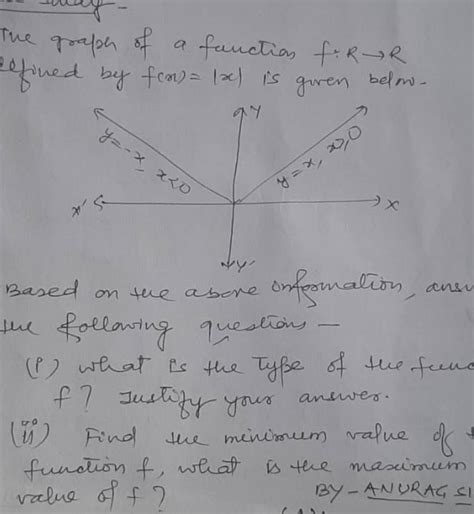 The graph of a function f: R→R
defined by f(x) = |x| is given below-
Y
y=-x, x<0
y=x, x≥0
X'
X
Y'
Based on the above information, answ
the following questions —
(i) what is the type of the func
f? Justify your answer.
(ii) Find the minimum value of t
function f, what is the maximum
value of f?
BY-ANURAG SI